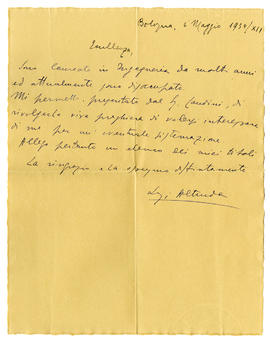 Bologna, 2 Maggio 1934/XII
Eccellenza,
Sono laureato in Ingegneria da molti anni
ed attualmente sono disoccupato.
Mi permetto, presentato dal , di
rivolgerLe viva preghiera di volersi interessare
di me per mia eventuale sistemazione
Allego pertanto un elenco dei miei titoli
La ringrazio e La ossequio distintamente